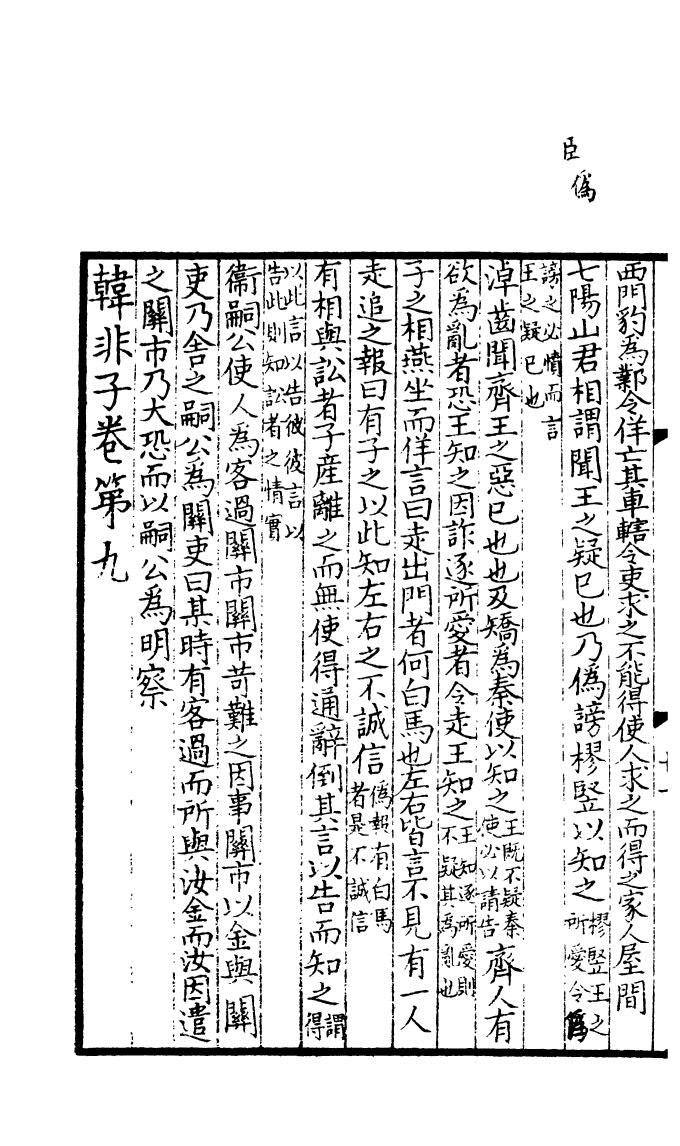 臣
僞
西門豹為鄴令佯亡其車轄令吏求之不能得使人求之而得之家人屋間
七陽山君相謂聞王之疑已也乃僞謗樛竪以知之樛竪王之所愛令僞
謗之必憤而言王之疑已也
淖齒聞齊王之惡已也也及矯為秦使以知之王既不疑秦使必以請告齊人有
欲為亂者恐王知之因詐逐所愛者令走王知之王知逐所愛則不疑其為亂也
子之相燕坐而佯言曰走出門者何白馬也左右皆言不見有一人
走追之報曰有子之以此知左右之不誠信僞報有白馬者是不誠信
有相與訟者子產離之而無使得通辭倒其言以告而知之謂得
以此言以告彼彼言以告此則知訟者之情實
衞嗣公使人為客過關市關市苛難之因事關市以金與關
吏乃舍之嗣公為關吏曰某時有客過而所與汝金而汝因遣
之關市乃大恐而以嗣公為明察
韓非子卷第九